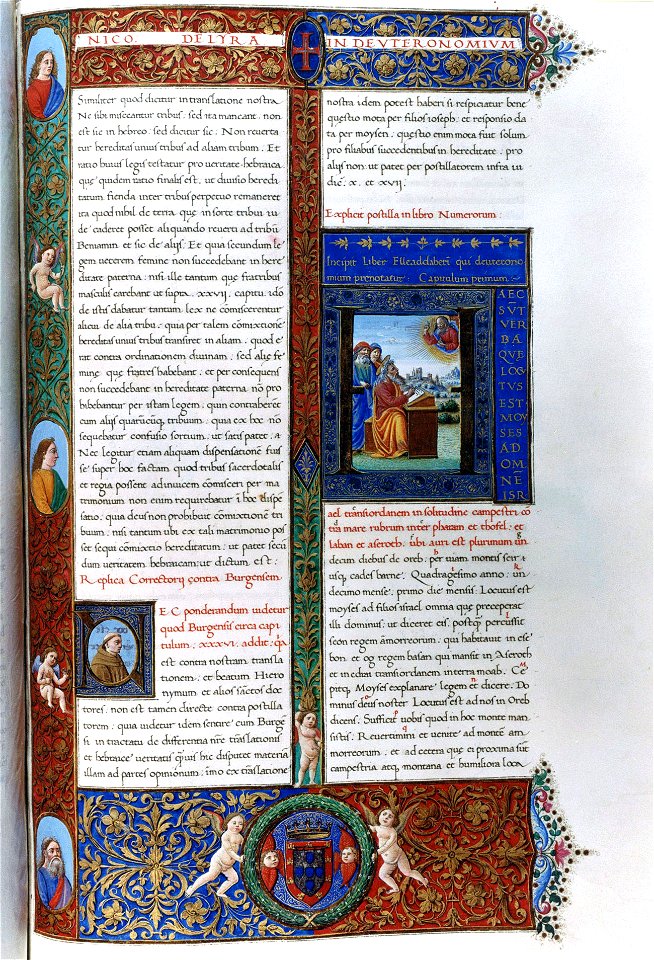 NICO. DE LYRA
IN DEUTERONOMIUM
Similiter quod dicitur in translatione nostra
Ne sibi misceantur tribus. sed ita maneant. non
est sic in hebreo: sed dicitur sic. Non reuerta
tur hereditas unius tribus ad aliam tribum. Et
ratio huius legis testatur pro ueritate hebraica
que quidem ratio finalis est, ut diuisio heredi
tatum fienda inter tribus perpetuo remaneret
ita quod nihil de terra que in sorte tribui iu
de caderet posset aliquando reuerti ad tribū
Beniamin. et sic de alijs. Et quia secundum le
gem ueterem femine non succedebant in here
ditate paterna: nisi ille tantum que fratribus
masculis carebant ut supra. xxvij. capitu. idō
de istis dabatur tantum lex ne comiscerentur
alicui de alia tribu: quia per talem comixtione
hereditas unius tribus transiret in aliam: quod e
rat contra ordinationem diuinam. sed alie fe
mine que fratres habebant: et per consequens
non succedebant in hereditate paterna nō pro
hibebantur per istam legem: quin contraheret
cum alijs quarūcūq tribuum: quia ex hoc nō
sequebatur confusio sortium. ut satis patet: a
Nec legitur etiam aliquam dispensatione fuis
se super hoc factam quod tribus sacerdotalis
et regia possent adinuicem comisceri per ma
trimonium non enim requirebatur ī hoc dispē
satio. quia deus non prohibuit comixtionē tri
buum: nisi tantum ubi ex tali matrimonio pos
set sequi comixtio hereditatum: ut patet secū
dum ueritatem hebraicam: ut dictum est:
Replica Correctorij contra Burgensem
EC ponderandum uidetur
quod Burgensis circa capi
tulum: xxxvi: addit: qa
est contra nostram transla
tionem. et beatum Hiero
nymum et alios sanctos doc
tores. non est tamen directe contra postilla
torem: quia uidetur idem sentire cum Burgē
si in tractatu de differentia nrē translationis
et hebraice ueritatis quis hic disputet materiā
illam ad partes opinionum: imo ex translatione
nostra idem potest haberi si respiciatur bene
questio mota per filios ioseph: et responsio da
ta per moysen: questio enim mota fuit solum
pro filiabus succedentibus in hereditate: pro
alijs non. ut patet per postillatorem infra iu
dic. x. et xvij.
Explicit postilla in libro Numerorum:
Incipit Liber Elleaddabeti qui deuterono
mium prenotatur. Capitulum primum.
AEC
SŪT
VER
BA
QUE
LOC
TUS
EST
MOY
SES
AD
OM
NĒ
ISR
ael transiordanem in solitudine campestri cō
tra mare rubrum inter pharam et thofel: et
laban et aseroth. ubi auri est plurimum un
decim diebus de oreb. per uiam montis seir
usq cades barne. Quadragesimo anno. un
decimo mense. primo die mensis. Locutus est
moyses ad filios israel omnia que preceperat
illi dominus. ut diceret eis. postq percussit
seon regem amorreorum. qui habitauit in ese
bon. et og regem basan qui mansit in Aseroth
et in edrai transiordanem in terra moab. Ce
pitq Moyses explanare legem et dicere. Do
minus deus noster Locutus est ad nos in Oreb
dicens. Sufficit uobis quod in hoc monte man
sistis. Reuertimini et uenite ad monte am
morreorum. et ad cetera que ei proxima sut
campestria atq montana et humiliora loca